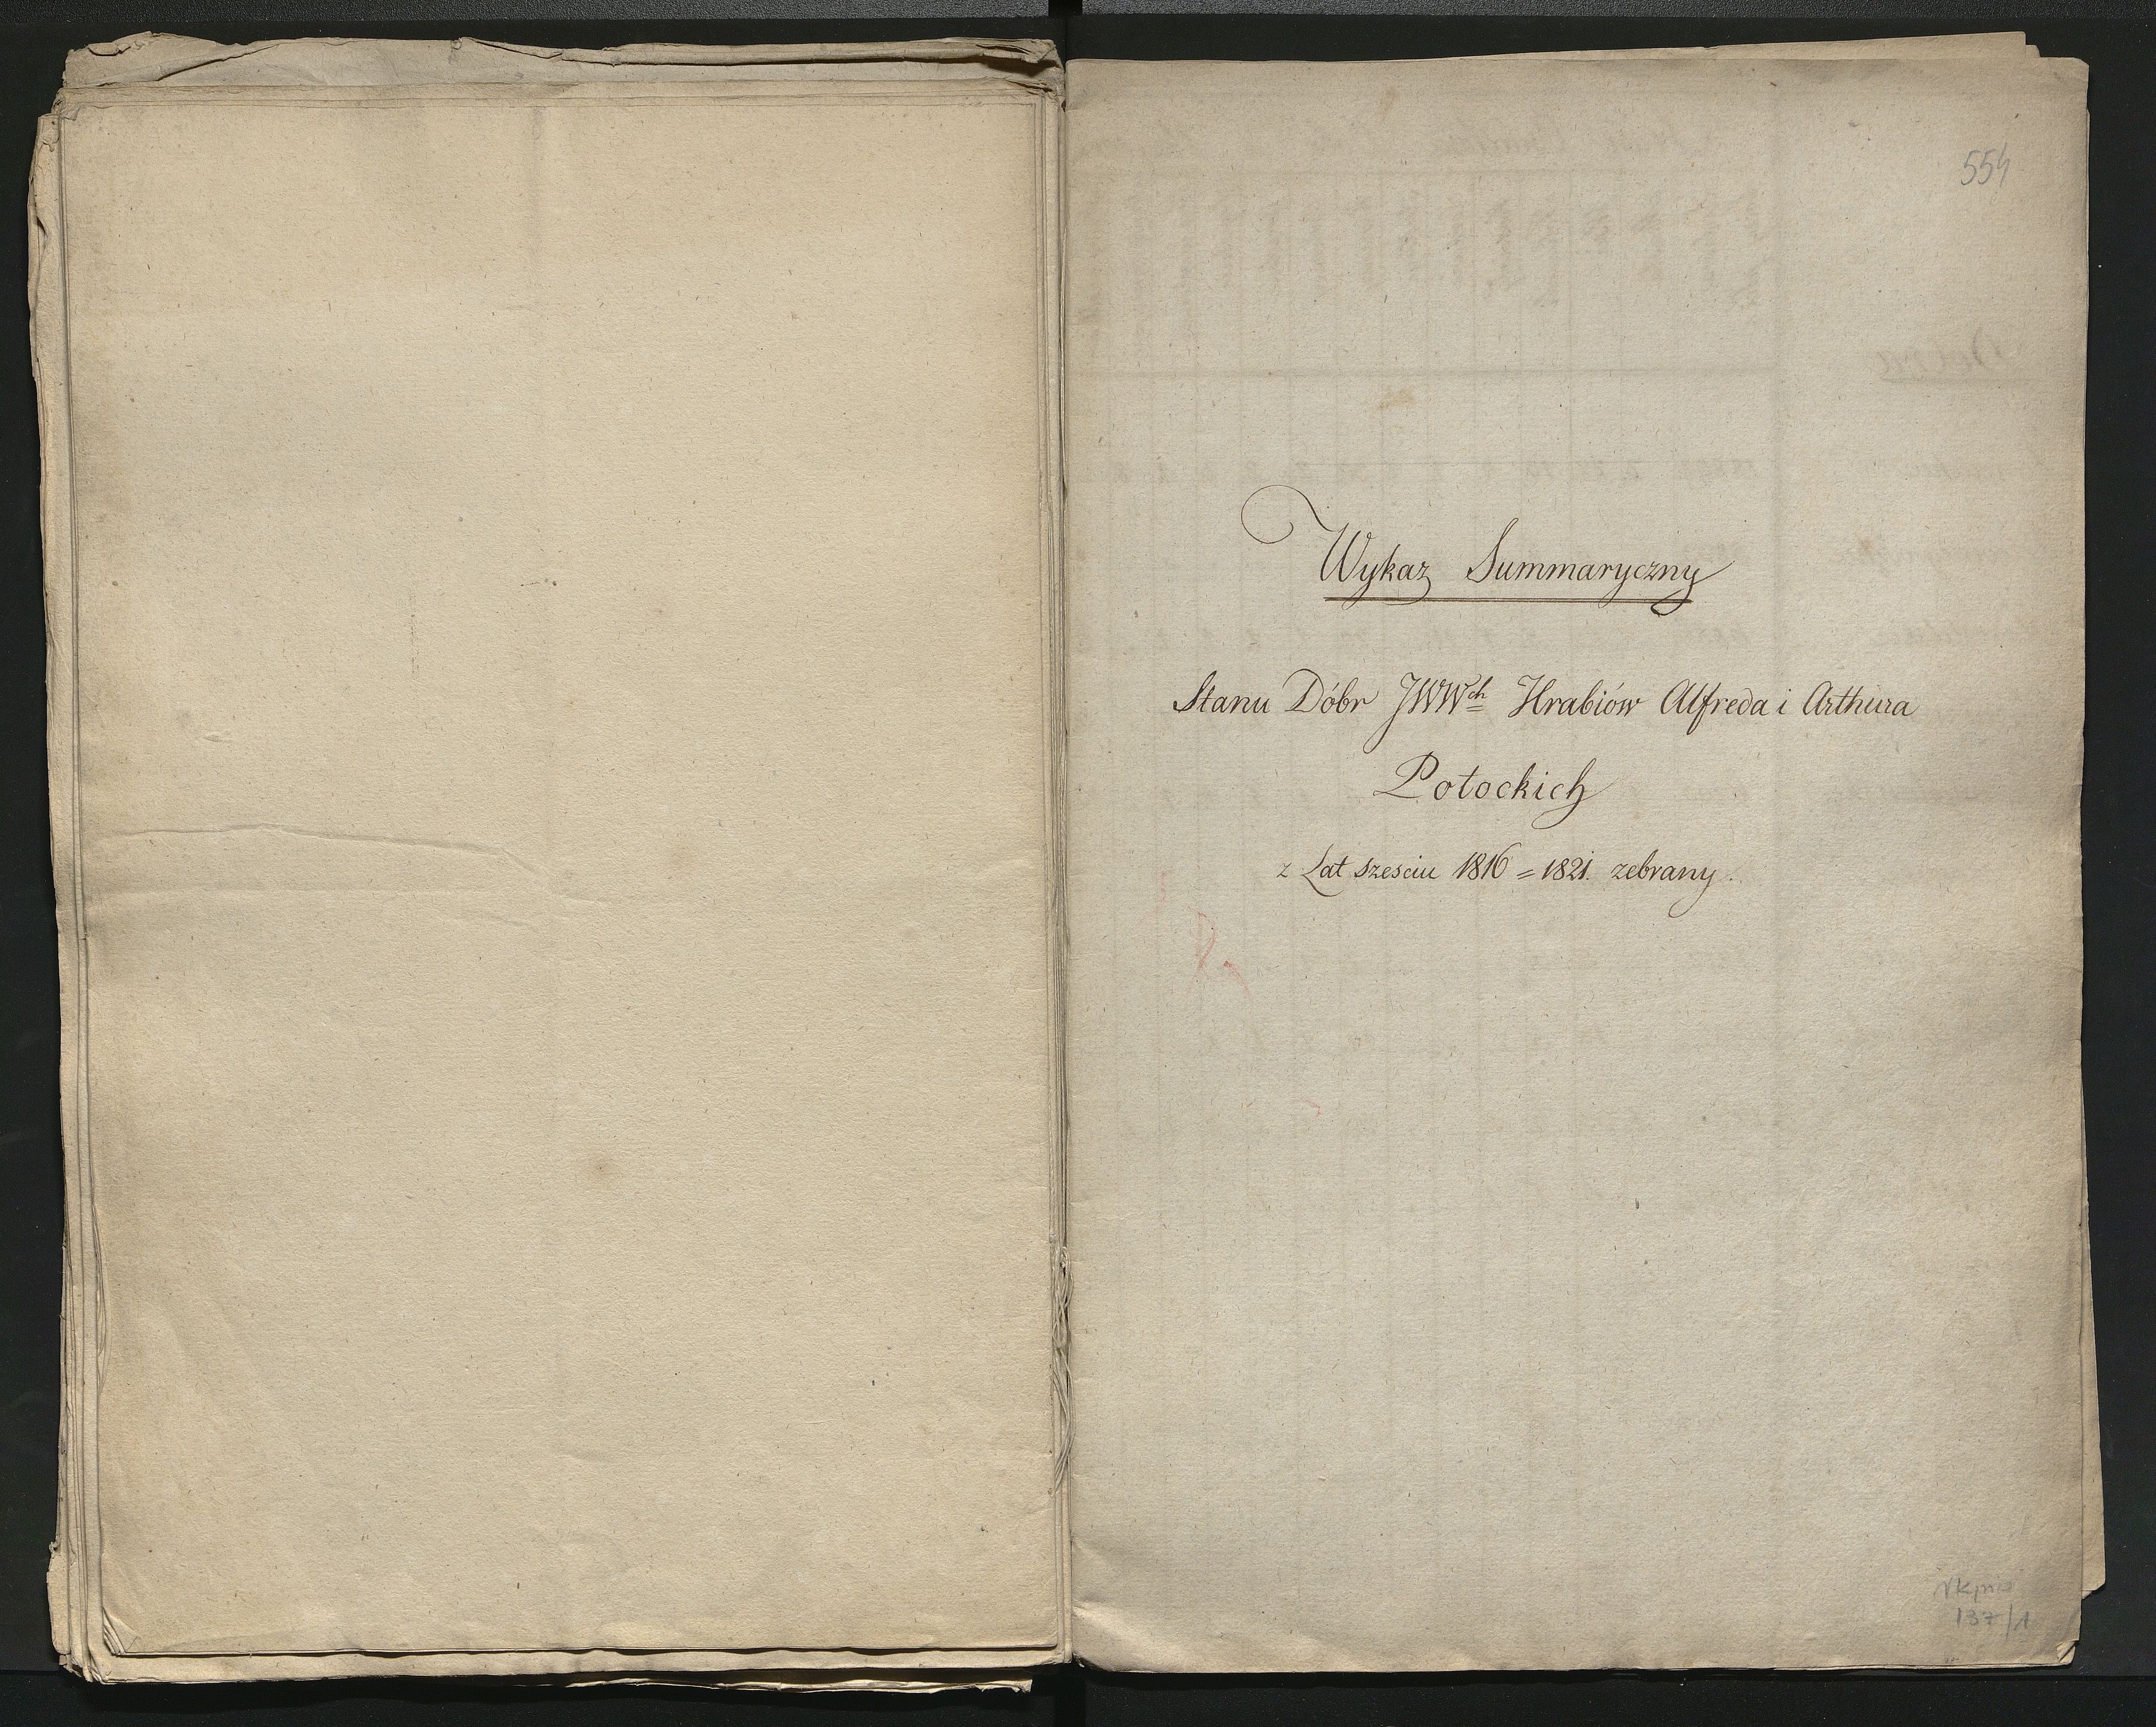 554
Wykaz Summaryczny
Stanu Dóbr JWWch Hrabiów Alfreda i Arthura
Potockich
z Lat szesciu 1816 = 1821. zebrany.
137/1